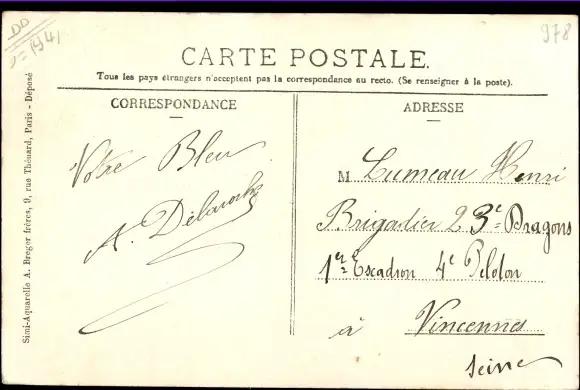 DD
1941
978
CARTE POSTALE.
Tous les pays étrangers n'acceptent pas la correspondance au recto. (Se renseigner à la poste).
CORRESPONDANCE
Votre Bleu
A. Delaroche
ADRESSE
M Lumeau Henri
Brigadier 23e Dragons
1er Escadron 4e Peloton
à Vincennes
Seine
Simi-Aquarelle A. Breger frères, 9, rue Thénard, Paris - Déposé